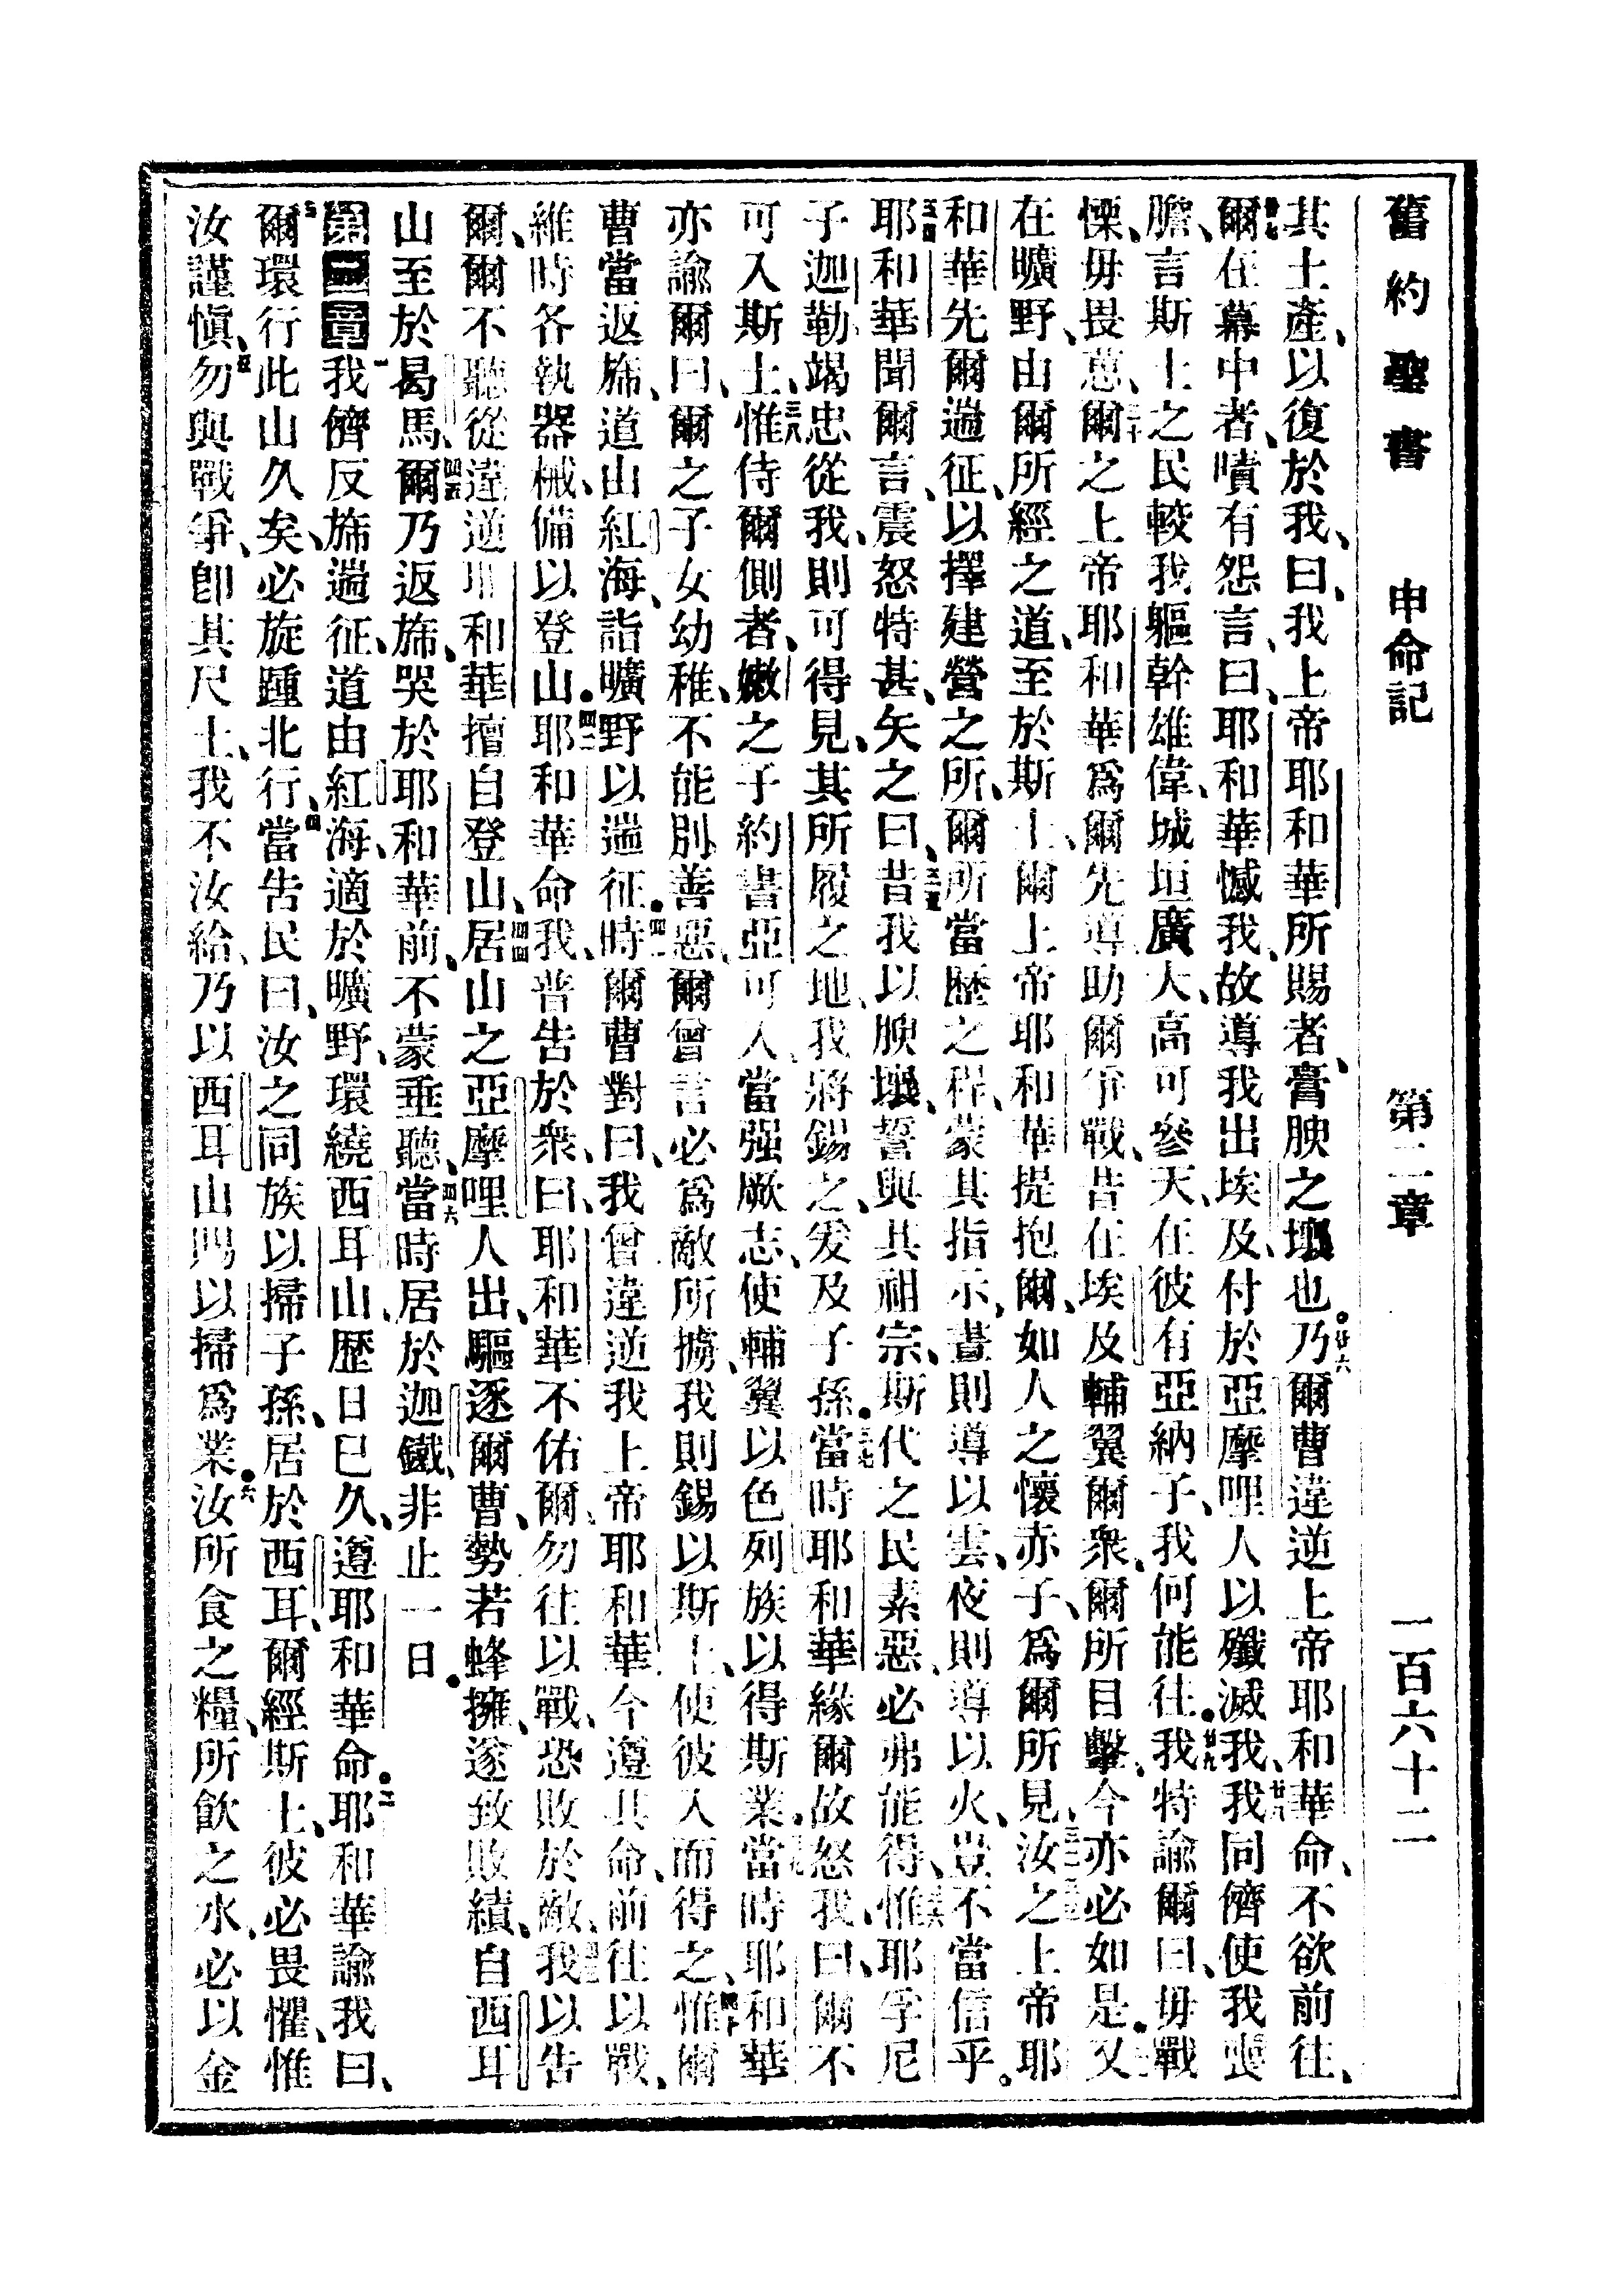 舊約聖書 申命記 第二章 一百六十二
其土產、以復於我、曰、我上帝耶和華所賜者、膏腴之壤也。廿六乃爾曹違逆上帝耶和華命、不欲前往、
廿七爾在幕中者、嘖有怨言、曰、耶和華憾我、故導我出埃及、付於亞摩哩人以殲滅我、廿八我同儕使我喪
膽、言斯土之民較我軀幹雄偉、城垣廣大、高可參天、在彼有亞納子、我何能往。廿九我特諭爾曰、毋戰
慄、毋畏葸、三十爾之上帝耶和華爲爾先導、助爾爭戰、昔在埃及輔翼爾衆、爾所目擊、今亦必如是。三一又
在曠野、由爾所經之道、至於斯土、爾上帝耶和華提抱爾、如人之懷赤子、爲爾所見、三二汝之上帝耶
和華先爾遄征、以擇建營之所、爾所當歷之程、蒙其指示、晝則導以雲、夜則導以火、豈不當信乎。
三四耶和華聞爾言、震怒特甚、矢之曰、三五昔我以腴壤、誓與其祖宗、斯代之民素惡、必弗能得、三六惟耶孚尼
子迦勒、竭忠從我、則可得見、其所履之地、我將錫之、爰及子孫。三七當時耶和華緣爾故怒我、曰、爾不
可入斯土、三八惟侍爾側者、嫩之子約書亞可入、當强厥志、使輔翼以色列族以得斯業。三九當時耶和華
亦諭爾曰、爾之子女幼稚、不能別善惡、爾曾言必爲敵所擄、我則錫以斯土、使彼入而得之、四十惟爾
曹當返旆、道山紅海、詣曠野以遄征。四一時爾曹對曰、我曾違逆我上帝耶和華、今遵其命、前往以戰、
維時各執器械、備以登山。四二耶和華命我、普告於衆、曰、耶和華不佑爾、勿往以戰、恐敗於敵、四三我以告
爾、爾不聽從、違逆耶和華、擅自登山、四四居山之亞摩哩人出、驅逐爾曹、勢若蜂擁、遂致敗績、自西耳
山至於曷馬、四五爾乃返旆、哭於耶和華前、不蒙垂聽、四六當時居於迦鐵、非止一日。
第二章 一我儕反旆遄征、道由紅海、適於曠野、環繞西耳山、歷日已久、遵耶和華命。二耶和華諭我曰、
三爾環行此山久矣、必旋踵北行、四當告民曰、汝之同族以掃子孫、居於西耳、爾經斯土、彼必畏懼、惟
汝謹愼、五勿與戰爭、卽其尺土、我不汝給、乃以西耳山賜以掃爲業。六汝所食之糧、所飮之水、必以金